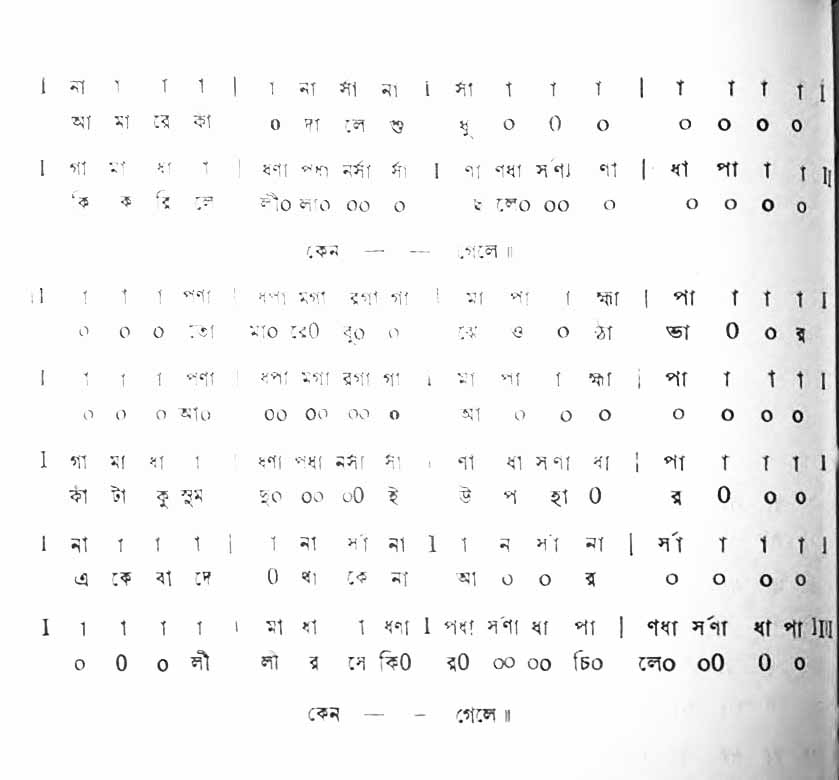 I না া া া | া না র্সা না I র্সা া া া | া া া া I
আ মা রে কা ০ দা লে শু ধু ০ ০ ০ ০ ০ ০ ০
I গা মা ধা া | ধণা পধা নর্সা র্সা I ণা ণধা র্সর্ণা ণা | ধা পা া া II
কি ক রি লে লী০ লা০ ০০ ০ ছ লে০ ০০ ০ ০ ০ ০ ০
কেন — — গেলে ॥
II া া া পণা | ধপা মগা রগা গা | মা পা া হ্মা | পা া া া I
০ ০ ০ তো মা০ রে০ বু০ ০ ঝে ও ০ ঠা ভা ০ ০ র
I া া া পণা | ধপা মগা রগা গা I মা পা া হ্মা | পা া া া I
০ ০ ০ আ০ ০০ ০০ ০০ ০ আ ০ ০ ০ ০ ০ ০ ০
I গা মা ধা া | ধণা পধা নর্সা র্সা I ণা ধা র্সণা ধা | পা া া া I
কাঁ টা কু সুম ছ০ ০০ ০০ ই উ প হা ০ র ০ ০ ০
I না া া া | া না র্সা না I া ন র্সা না | র্সা া া া I
এ কে বা দে ০ থা কে না আ ০ ০ র ০ ০ ০ ০
I া া া া | মা ধা া ধণা I পধা র্সণা ধা পা | ণধা র্সণা ধা পা IIII
০ ০ ০ লী লা র সে কি০ র০ ০০ ০০ চি০ লে০ ০০ ০ ০
কেন — – গেলে ॥